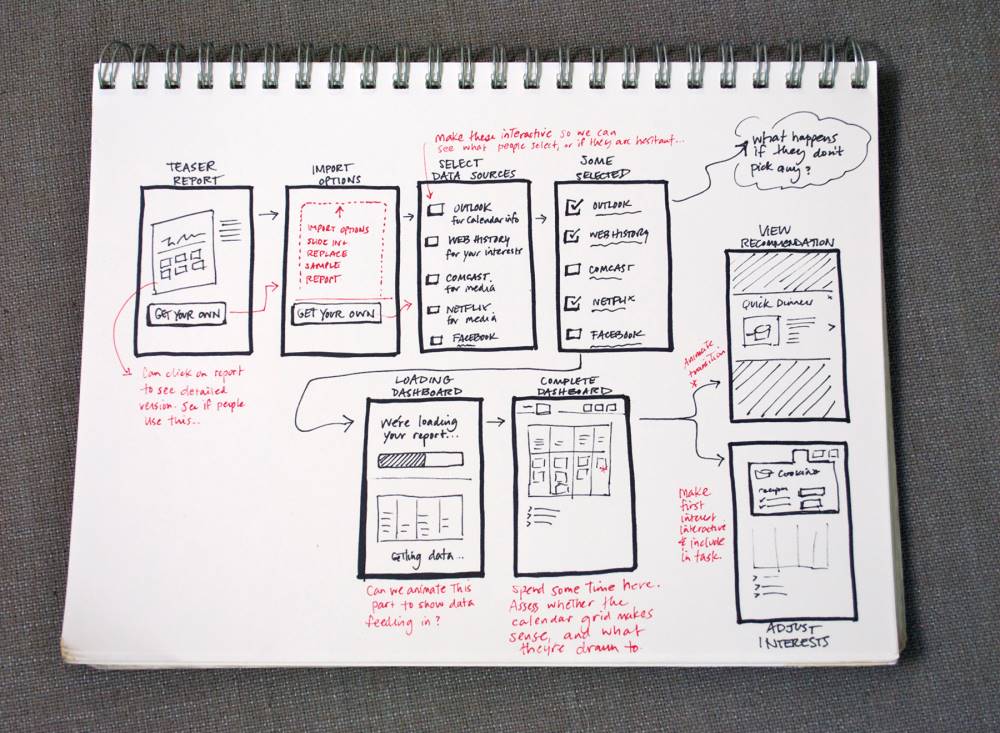 make these interactive so we can
see what people select, or if they are hesitant...
What happens
if they don't
pick any?
TEASER
REPORT
GET YOUR OWN
Can click on report
to see detailed
version. See if people
use this...
IMPORT
OPTIONS
IMPORT OPTIONS
SLIDE IN +
REPLACE
SAMPLE
REPORT
GET YOUR OWN
SELECT
DATA SOURCES
OUTLOOK
for calendar info
WEB HISTORY
for your interests
COMCAST
for media
NETFLIX
for media
FACEBOOK
SOME
SELECTED
OUTLOOK
WEB HISTORY
COMCAST
NETFLIX
FACEBOOK
VIEW
RECOMMENDATION
Quick Dinner
Animate
transition
LOADING
DASHBOARD
We're loading
your report...
Getting data...
Can we animate this
part to show data
feeding in?
COMPLETE
DASHBOARD
Spend some time here.
Assess whether the
calendar grid makes
sense, and what
they're drawn to.
Make
first
interest
interactive
& include
in task.
Cooking
recipes
ADJUST
INTERESTS